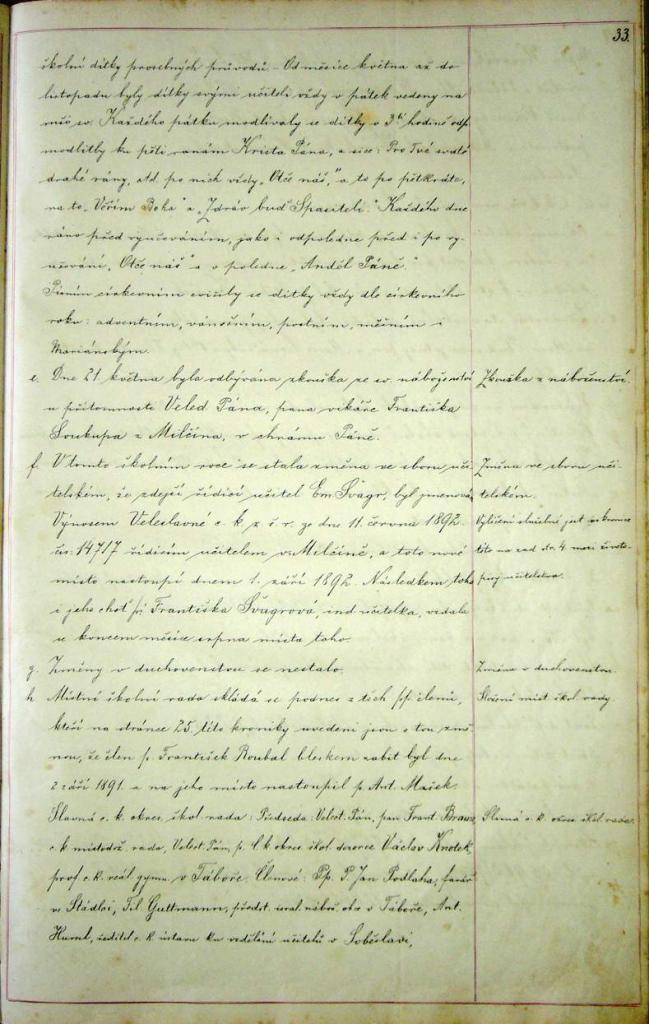 33.
školní dítky prosebných průvodů. – Od měsíce května až do
listopadu byly dítky svými učiteli vždy v pátek vedeny na
mši sv. Každého pátku modlívaly se dítky o 3tí hodině odp.
modlitby ku pěti ranám Krista Pána, a sice: Pro Tvé svaté
drahé rány, atd. po nich vždy „Otče náš," a to po pětkráte,
na to „Věřím Boha" a „Zdráv buď Spasiteli." Každého dne
ráno před vyučováním, jako i odpoledne před i po vy-
učování „Otče náš" a v poledne „Anděl Páně."
Písním církevním cvičily se dítky vždy dle církevního
roku: adventním, vánočním, postním, mešním i
Mariánským.
e. Dne 21. května byla odbývána zkouška ze sv. náboženství
u přítomnosti Veled. Pána, pana vikáře Františka
Soukupa z Milčína, v chrámu Páně.
Zkouška z náboženství.
f. V tomto školním roce se stala změna ve sboru uči-
telském, že zdejší řídící učitel Em. Švagr, byl jmenován
Výnosem Veleslavné c. k. z. š. r. ze dne 11. června 1892.
čís. 14717 řídícím učitelem v Milčíně, a toto nové
místo nastoupí dnem 1. září 1892. Následkem toho
i jeho choť pí Františka Švagrová, ind. učitelka, vzdala
se koncem měsíce srpna místa toho.
Změna ve sboru uči-
telském.
Vylíčení služebné jest v kronice
této na zad. str. 4 mezi živote-
pisy učitelstva.
g. Změny v duchovenstvu se nestalo.
Změna v duchovenstvu.
h. Místní školní rada skládá se podnes z těch pp. členů,
kteří na stránce 25. této kroniky uvedeni jsou s tou změ-
nou, že člen p. František Roubal bleskem zabit byl dne
2 září 1891. a na jeho místo nastoupil p. Ant. Mašek.
Složení míst. škol. rady.
Slavná c. k. okres. škol. rada: Předseda: Velect. Pán, pan Frant. Braun
c. k. místodrž. rada, Velect. Pán, p. C. k. okres. škol. dozorce Václav Knotek,
prof. c. k. reál. gymn. v Táboře. Členové: Pp. P. Jan Podlaha, farář
ve Stádlci, Fil. Guttmann, předst. israel. nábož. obce v Táboře, Ant.
Huml, ředitel c. k. ústavu ku vzdělání učitelů v Soběslavi,
Slavná c. k. okres. škol. rada.